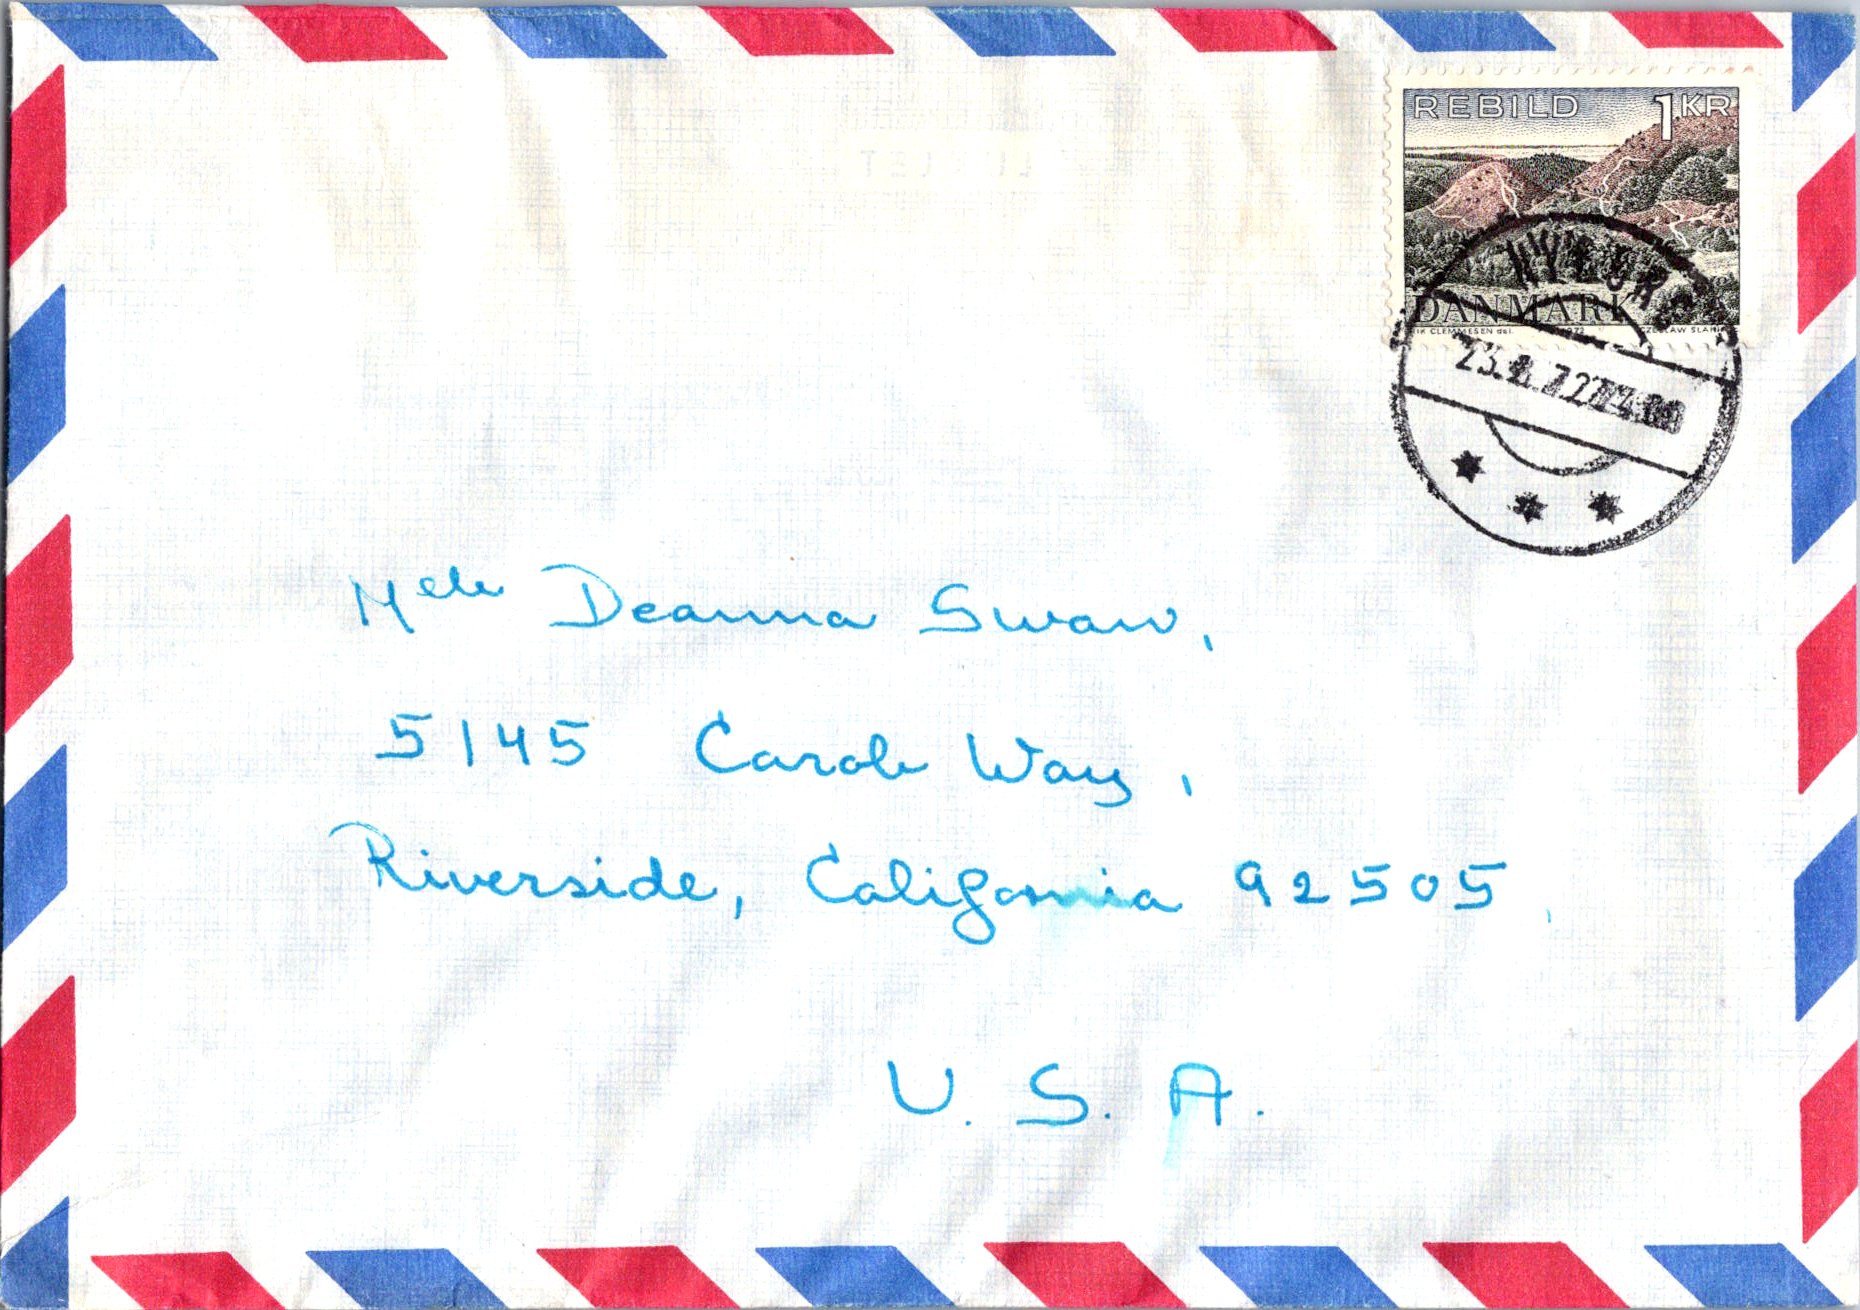 REBILD 1KR
DANMARK
IK CLEMMESEN del.
CZESLAW SLANIA
23. 72
Melle Deanna Swan,
5145 Carole Way,
Riverside, California 92505,
U. S. A.